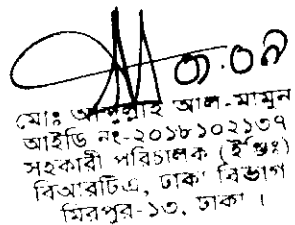 ৩.০৯
মোঃ আব্দুল্লাহ আল-মামুন
আইডি নং-২০১৮১০২১৩৭
সহকারী পরিচালক (ইঞ্জিঃ)
বিআরটিএ, ঢাকা বিভাগ
মিরপুর-১৩, ঢাকা ।